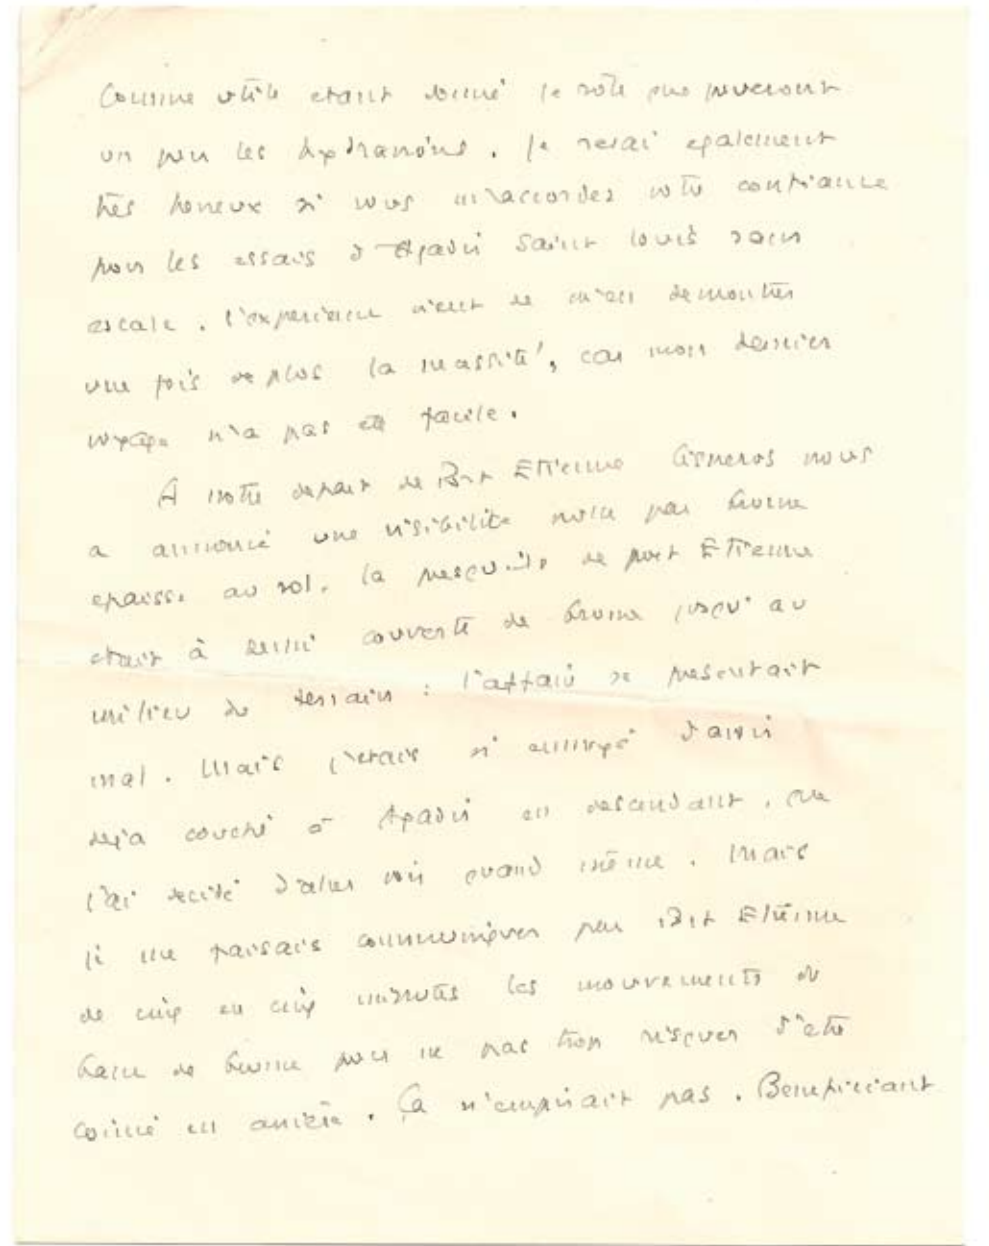 comme utile etant donné le rôle que joueront
un peu les hydravions. Je serai egalement
très heureux si vous m'accordez votre confiance
pour les essais d'Agadir Saint Louis sans
escale. l'experience vient de m'en demontrer
une fois de plus la necessité, car mon dernier
voyage n'a pas été facile.
A notre depart de Port Etienne Cisneros nous
a annoncé une visibilité nulle par brume
epaisse au sol. la presqu'ile de port Etienne
etait à demi couverte de brume jusqu'au
milieu du terrain : l'affaire se presentait
mal. Mais j'etais si ennuyé d'avoir
deja couché à Agadir en descendant, que
j'ai decidé d'aller voir quand même. Mais
je me faisais communiquer par Port Etienne
de cinq en cinq minutes les mouvements du
banc de brume pour ne pas trop risquer d'etre
coincé en arrière. Ça n'empirait pas. Beneficiant